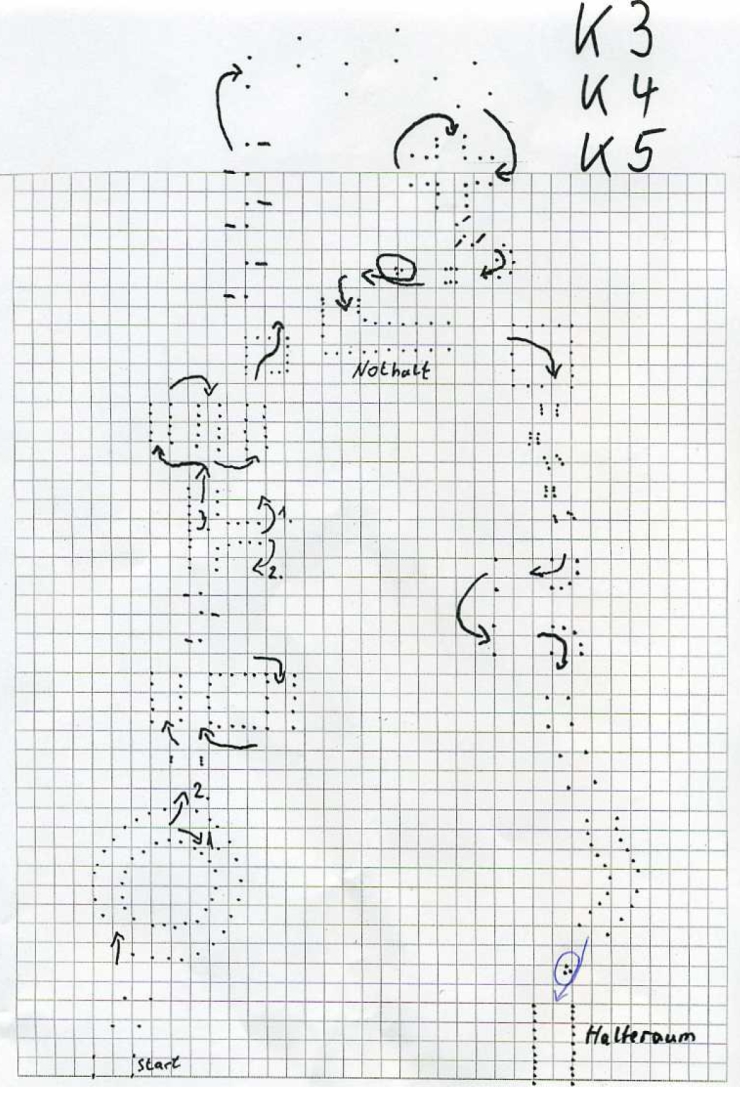 K 3
K 4
K 5
Nothalt
1.
2.
2.
1
Start
Halteraum